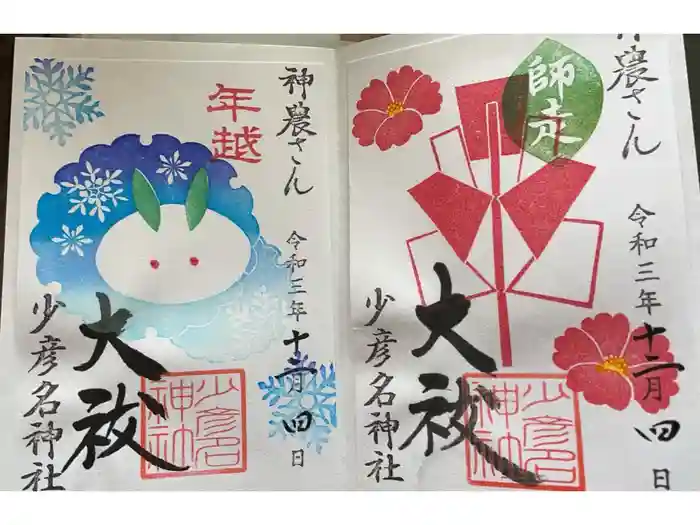 神農さん
年越
令和三年十二月四日
大祓
少彦名神社
少彦名
神社
神農さん
師走
令和三年十二月四日
大祓
少彦名神社
少彦名
神社